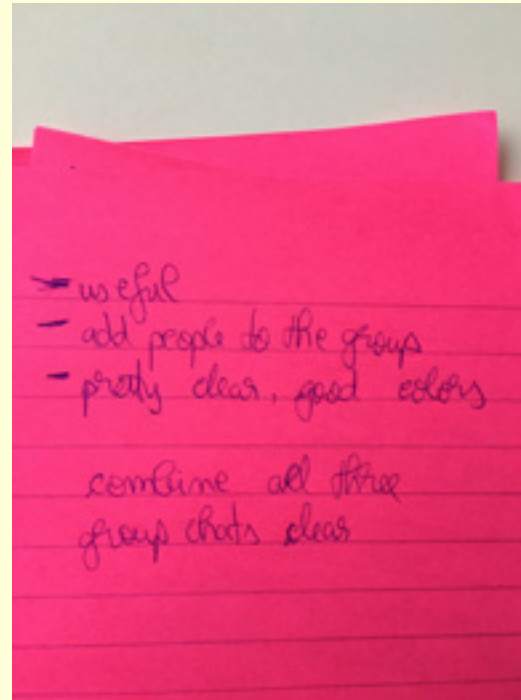 - useful
- add people to the group
- pretty clear, good colors
combine all three
group chats clear